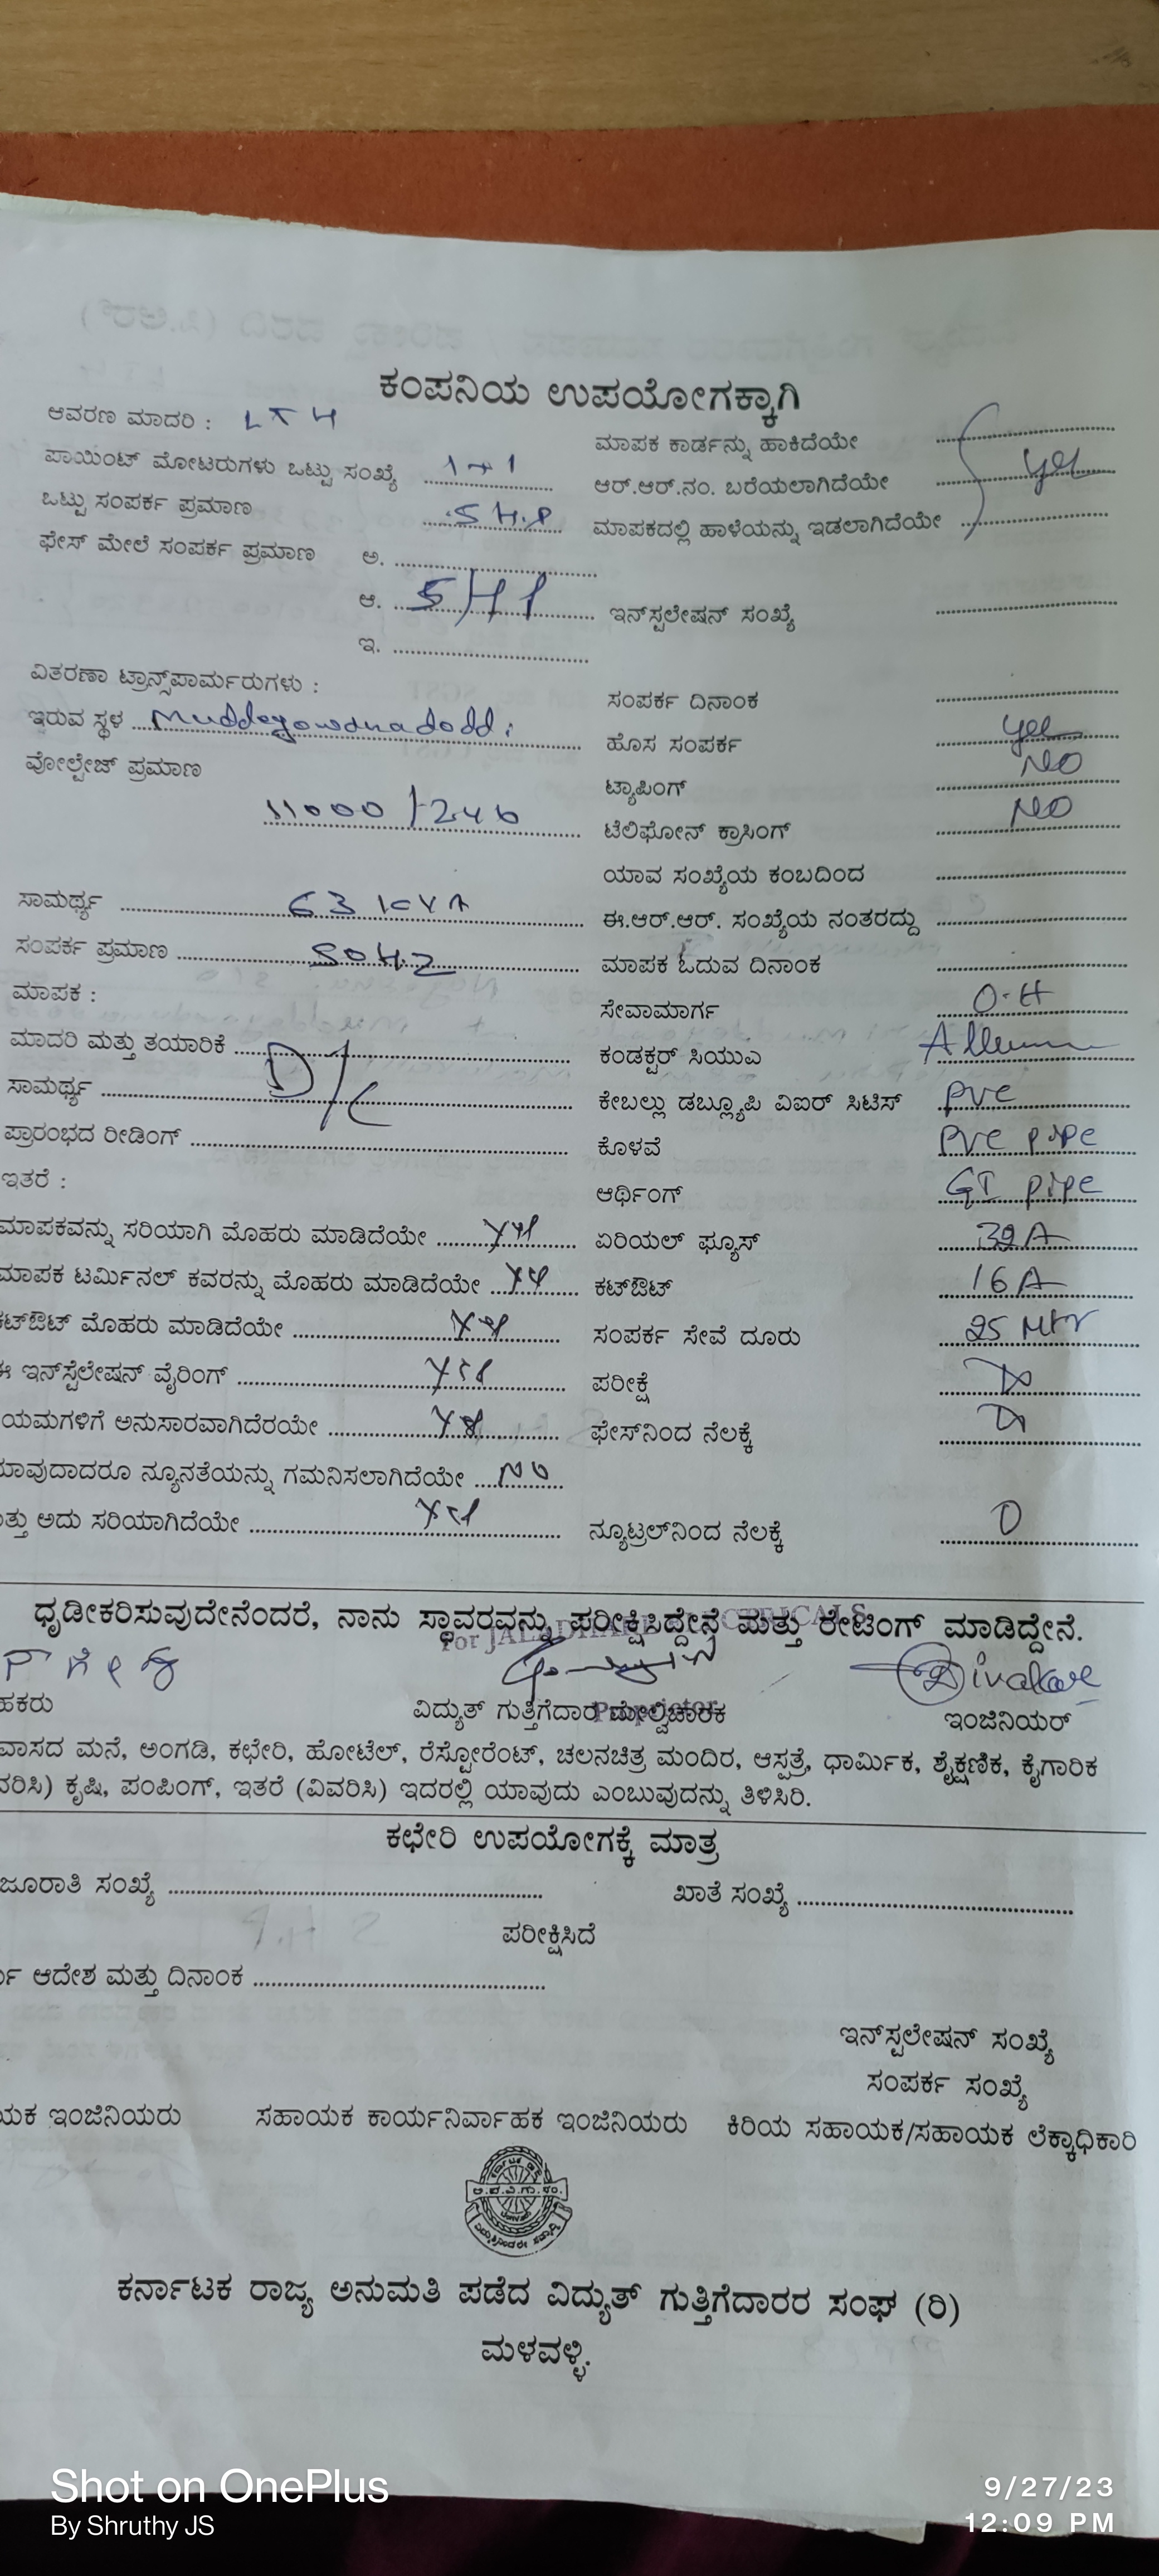 ಕಂಪನಿಯ ಉಪಯೋಗಕ್ಕಾಗಿ
ಆವರಣ ಮಾದರಿ : LT 4
ಮಾಪಕ ಕಾರ್ಡನ್ನು ಹಾಕಿದೆಯೇ
ಪಾಯಿಂಟ್ ಮೋಟರುಗಳು ಒಟ್ಟು ಸಂಖ್ಯೆ 1+1
ಆರ್.ಆರ್.ನಂ. ಬರೆಯಲಾಗಿದೆಯೇ yes
ಒಟ್ಟು ಸಂಪರ್ಕ ಪ್ರಮಾಣ 5 H.P
ಮಾಪಕದಲ್ಲಿ ಹಾಳೆಯನ್ನು ಇಡಲಾಗಿದೆಯೇ
ಫೇಸ್ ಮೇಲೆ ಸಂಪರ್ಕ ಪ್ರಮಾಣ ಅ.
ಆ. 5 HP
ಇನ್‌ಸ್ಪಲೇಷನ್ ಸಂಖ್ಯೆ
ಇ.
ವಿತರಣಾ ಟ್ರಾನ್ಸ್‌ಪಾರ್ಮರುಗಳು :
ಸಂಪರ್ಕ ದಿನಾಂಕ
ಇರುವ ಸ್ಥಳ Muddegowdanadoddi
ಹೊಸ ಸಂಪರ್ಕ yes
ವೋಲ್ಟೇಜ್ ಪ್ರಮಾಣ
ಟ್ಯಾಪಿಂಗ್ NO
11000 / 240
ಟೆಲಿಫೋನ್ ಕ್ರಾಸಿಂಗ್ NO
ಯಾವ ಸಂಖ್ಯೆಯ ಕಂಬದಿಂದ
ಸಾಮರ್ಥ್ಯ 63 KVA
ಈ.ಆರ್.ಆರ್. ಸಂಖ್ಯೆಯ ನಂತರದ್ದು
ಸಂಪರ್ಕ ಪ್ರಮಾಣ 50 HZ
ಮಾಪಕ ಓದುವ ದಿನಾಂಕ
ಮಾಪಕ :
ಸೇವಾಮಾರ್ಗ O-H
ಮಾದರಿ ಮತ್ತು ತಯಾರಿಕೆ
ಕಂಡಕ್ಟರ್ ಸಿಯುಎ
ಸಾಮರ್ಥ್ಯ D/C
ಕೇಬಲ್ಲು ಡಬ್ಲ್ಯೂಪಿ ವಿಐರ್ ಸಿಟಿಸ್ PVC
ಪ್ರಾರಂಭದ ರೀಡಿಂಗ್
ಕೊಳವೆ PVC PIPE
ಇತರೆ :
ಆರ್ಥಿಂಗ್ GI PIPE
ಮಾಪಕವನ್ನು ಸರಿಯಾಗಿ ಮೊಹರು ಮಾಡಿದೆಯೇ Yes
ಏರಿಯಲ್ ಫ್ಯೂಸ್ 32 A
ಮಾಪಕ ಟರ್ಮಿನಲ್ ಕವರನ್ನು ಮೊಹರು ಮಾಡಿದೆಯೇ Yes
ಕಟ್‌ಔಟ್ 16 A
ಕಟ್‌ಔಟ್ ಮೊಹರು ಮಾಡಿದೆಯೇ Yes
ಸಂಪರ್ಕ ಸೇವೆ ದೂರು 25 Mtr
ಈ ಇನ್‌ಸ್ಟೆಲೇಷನ್ ವೈರಿಂಗ್ Yes
ಪರೀಕ್ಷೆ
ಯಮಗಳಿಗೆ ಅನುಸಾರವಾಗಿದೆರಯೇ Yes
ಫೇಸ್‌ನಿಂದ ನೆಲಕ್ಕೆ
ಯಾವುದಾದರೂ ನ್ಯೂನತೆಯನ್ನು ಗಮನಿಸಲಾಗಿದೆಯೇ NO
ತ್ತು ಅದು ಸರಿಯಾಗಿದೆಯೇ Yes
ನ್ಯೂಟ್ರಲ್‌ನಿಂದ ನೆಲಕ್ಕೆ 0
ಧೃಡೀಕರಿಸುವುದೇನೆಂದರೆ, ನಾನು ಸ್ಥಾವರವನ್ನು ಪರೀಕ್ಷಿಸಿದ್ದೇನೆ ಮತ್ತು ರೇಟಿಂಗ್ ಮಾಡಿದ್ದೇನೆ.
Divakar
ಹಕರು
ವಿದ್ಯುತ್ ಗುತ್ತಿಗೆದಾರ ಮೇಲ್ವಿಚಾರಕ
ಇಂಜಿನಿಯರ್
ವಾಸದ ಮನೆ, ಅಂಗಡಿ, ಕಛೇರಿ, ಹೋಟೆಲ್, ರೆಸ್ಟೋರೆಂಟ್, ಚಲನಚಿತ್ರ ಮಂದಿರ, ಆಸ್ಪತ್ರೆ, ಧಾರ್ಮಿಕ, ಶೈಕ್ಷಣಿಕ, ಕೈಗಾರಿಕ
ವರಿಸಿ) ಕೃಷಿ, ಪಂಪಿಂಗ್, ಇತರೆ (ವಿವರಿಸಿ) ಇದರಲ್ಲಿ ಯಾವುದು ಎಂಬುವುದನ್ನು ತಿಳಿಸಿರಿ.
ಕಛೇರಿ ಉಪಯೋಗಕ್ಕೆ ಮಾತ್ರ
ಜೂರಾತಿ ಸಂಖ್ಯೆ
ಖಾತೆ ಸಂಖ್ಯೆ
ಪರೀಕ್ಷಿಸಿದೆ
ಆದೇಶ ಮತ್ತು ದಿನಾಂಕ
ಇನ್‌ಸ್ಪಲೇಷನ್ ಸಂಖ್ಯೆ
ಸಂಪರ್ಕ ಸಂಖ್ಯೆ
ಯಕ ಇಂಜಿನಿಯರು
ಸಹಾಯಕ ಕಾರ್ಯನಿರ್ವಾಹಕ ಇಂಜಿನಿಯರು
ಕಿರಿಯ ಸಹಾಯಕ/ಸಹಾಯಕ ಲೆಕ್ಕಾಧಿಕಾರಿ
ಕರ್ನಾಟಕ ರಾಜ್ಯ ಅನುಮತಿ ಪಡೆದ ವಿದ್ಯುತ್ ಗುತ್ತಿಗೆದಾರರ ಸಂಘ (ರಿ)
ಮಳವಳ್ಳಿ.
Shot on OnePlus
By Shruthy JS
9/27/23
12:09 PM